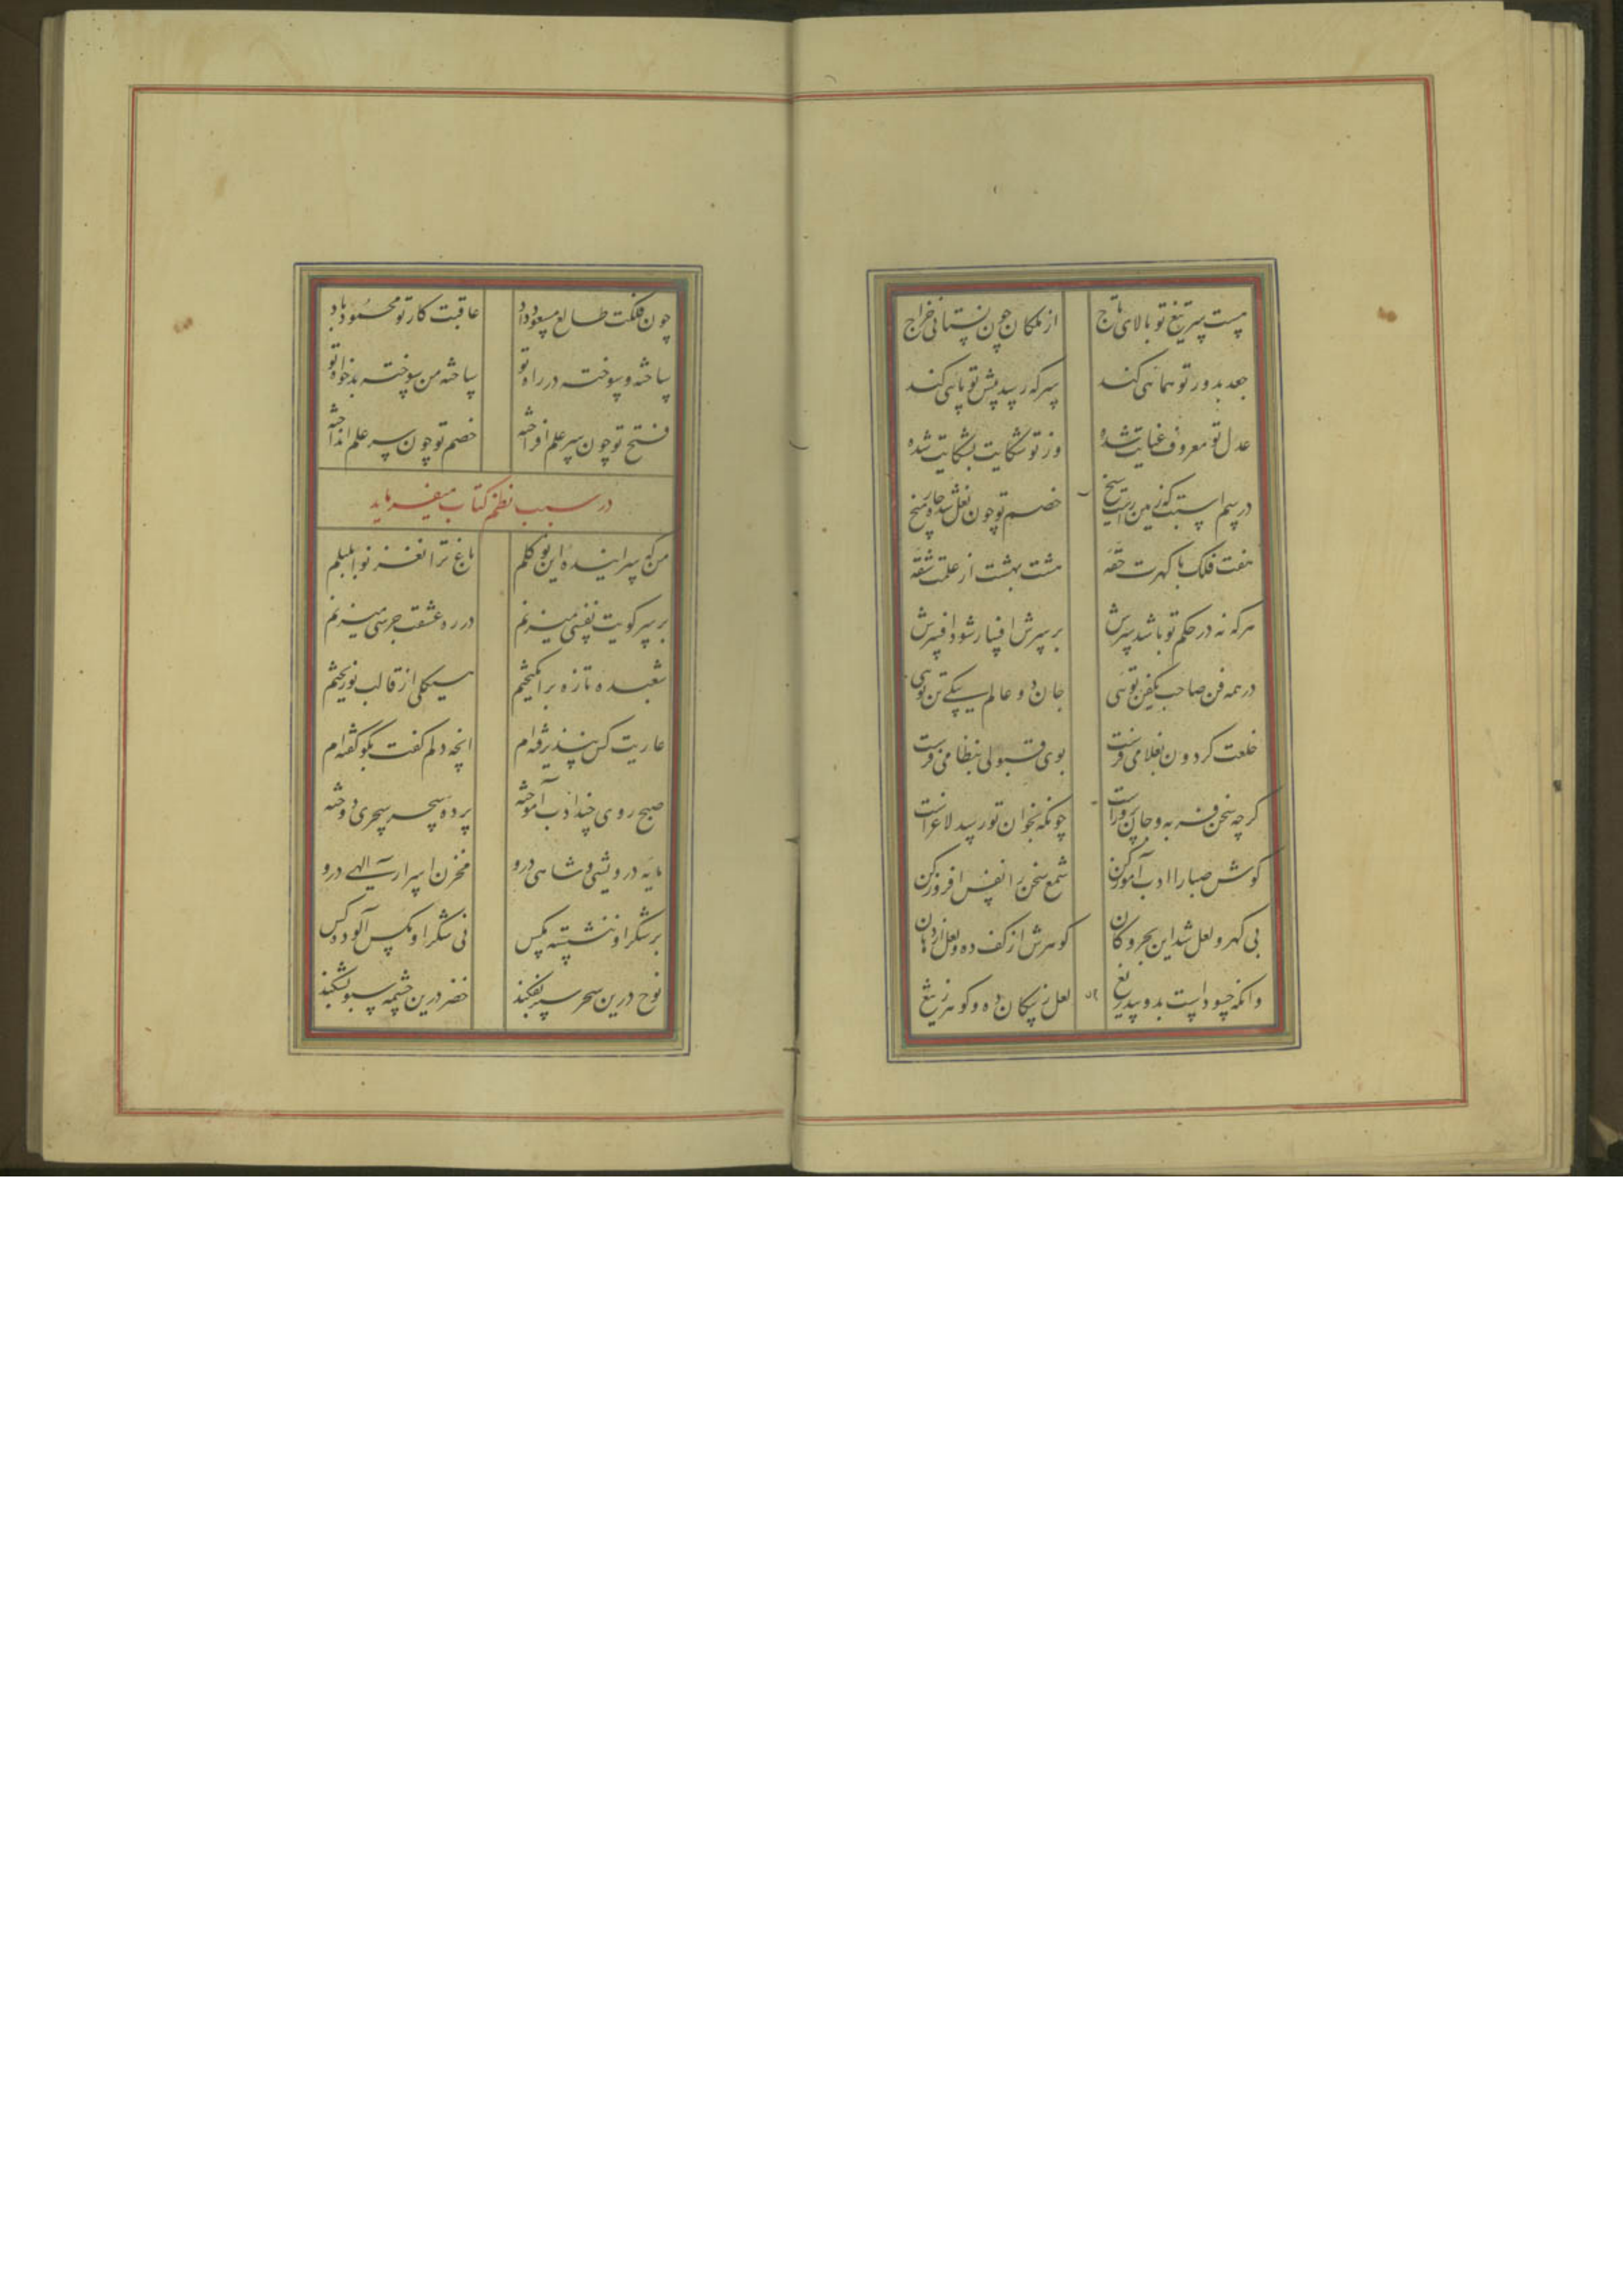 هست سر تیغ تو بالای تاج از ملکان چون نستانی خراج
جغد بدور تو همائی کند سر که رسد پیش تو پائی کند
عدل تو معروف عنایت شده وز تو شکایت بشکایت شده
در سم اسبت که زمین راست بیخ خصم تو چون نعل شده چار میخ
هفت فلک با گهرت حقه هشت بهشت از علمت شقه
هر که نه در حکم تو باشد سرش بر سرش افسار شود افسرش
در همه فن صاحب یکفن توئی جان دو عالم بیکی تن توئی
خلعت گردون بغلامی فرست بوی قبولی بنظامی فرست
گرچه سخن فربه و جان پرور است چونکه بخوان تو رسد لاغر است
گوش صبا را ادب آموز کن شمع سخن را نفس افروز کن
بی گهر و لعل شد این بحر و کان گوهرش از کف ده و لعل از دهان
وانکه حسود است بدو بیدریغ لعل ز پیکان ده و گوهر ز تیغ
چون فلکت طالع مسعود داد عاقبت کار تو محمود باد
ساخته و سوخته در راه تو ساخته من سوخته بدخواه تو
فتح تو چون سر علم افراخته خصم تو چون سر علم انداخته
در سبب نظم کتاب میفرماید
من که سراینده این نو گلم باغ ترا نغز نوا بلبلم
بر سر کویت نفسی میزنم در ره عشقت جرسی میزنم
شعبده تازه برانگیختم هیکلی از قالب نو ریختم
عاریت کس نپذیرفته‌ام انچه دلم گفت بگو گفته‌ام
صبح روی چند ادب آموخته پرده سحر سحری دوخته
مایه درویشی و شاهی درو مخزن اسرار الهی درو
بر شکر او ننشسته مگس نی شکر او مگس آلود کس
نوح درین بحر سپر بفکند خضر درین چشمه سبو بشکند